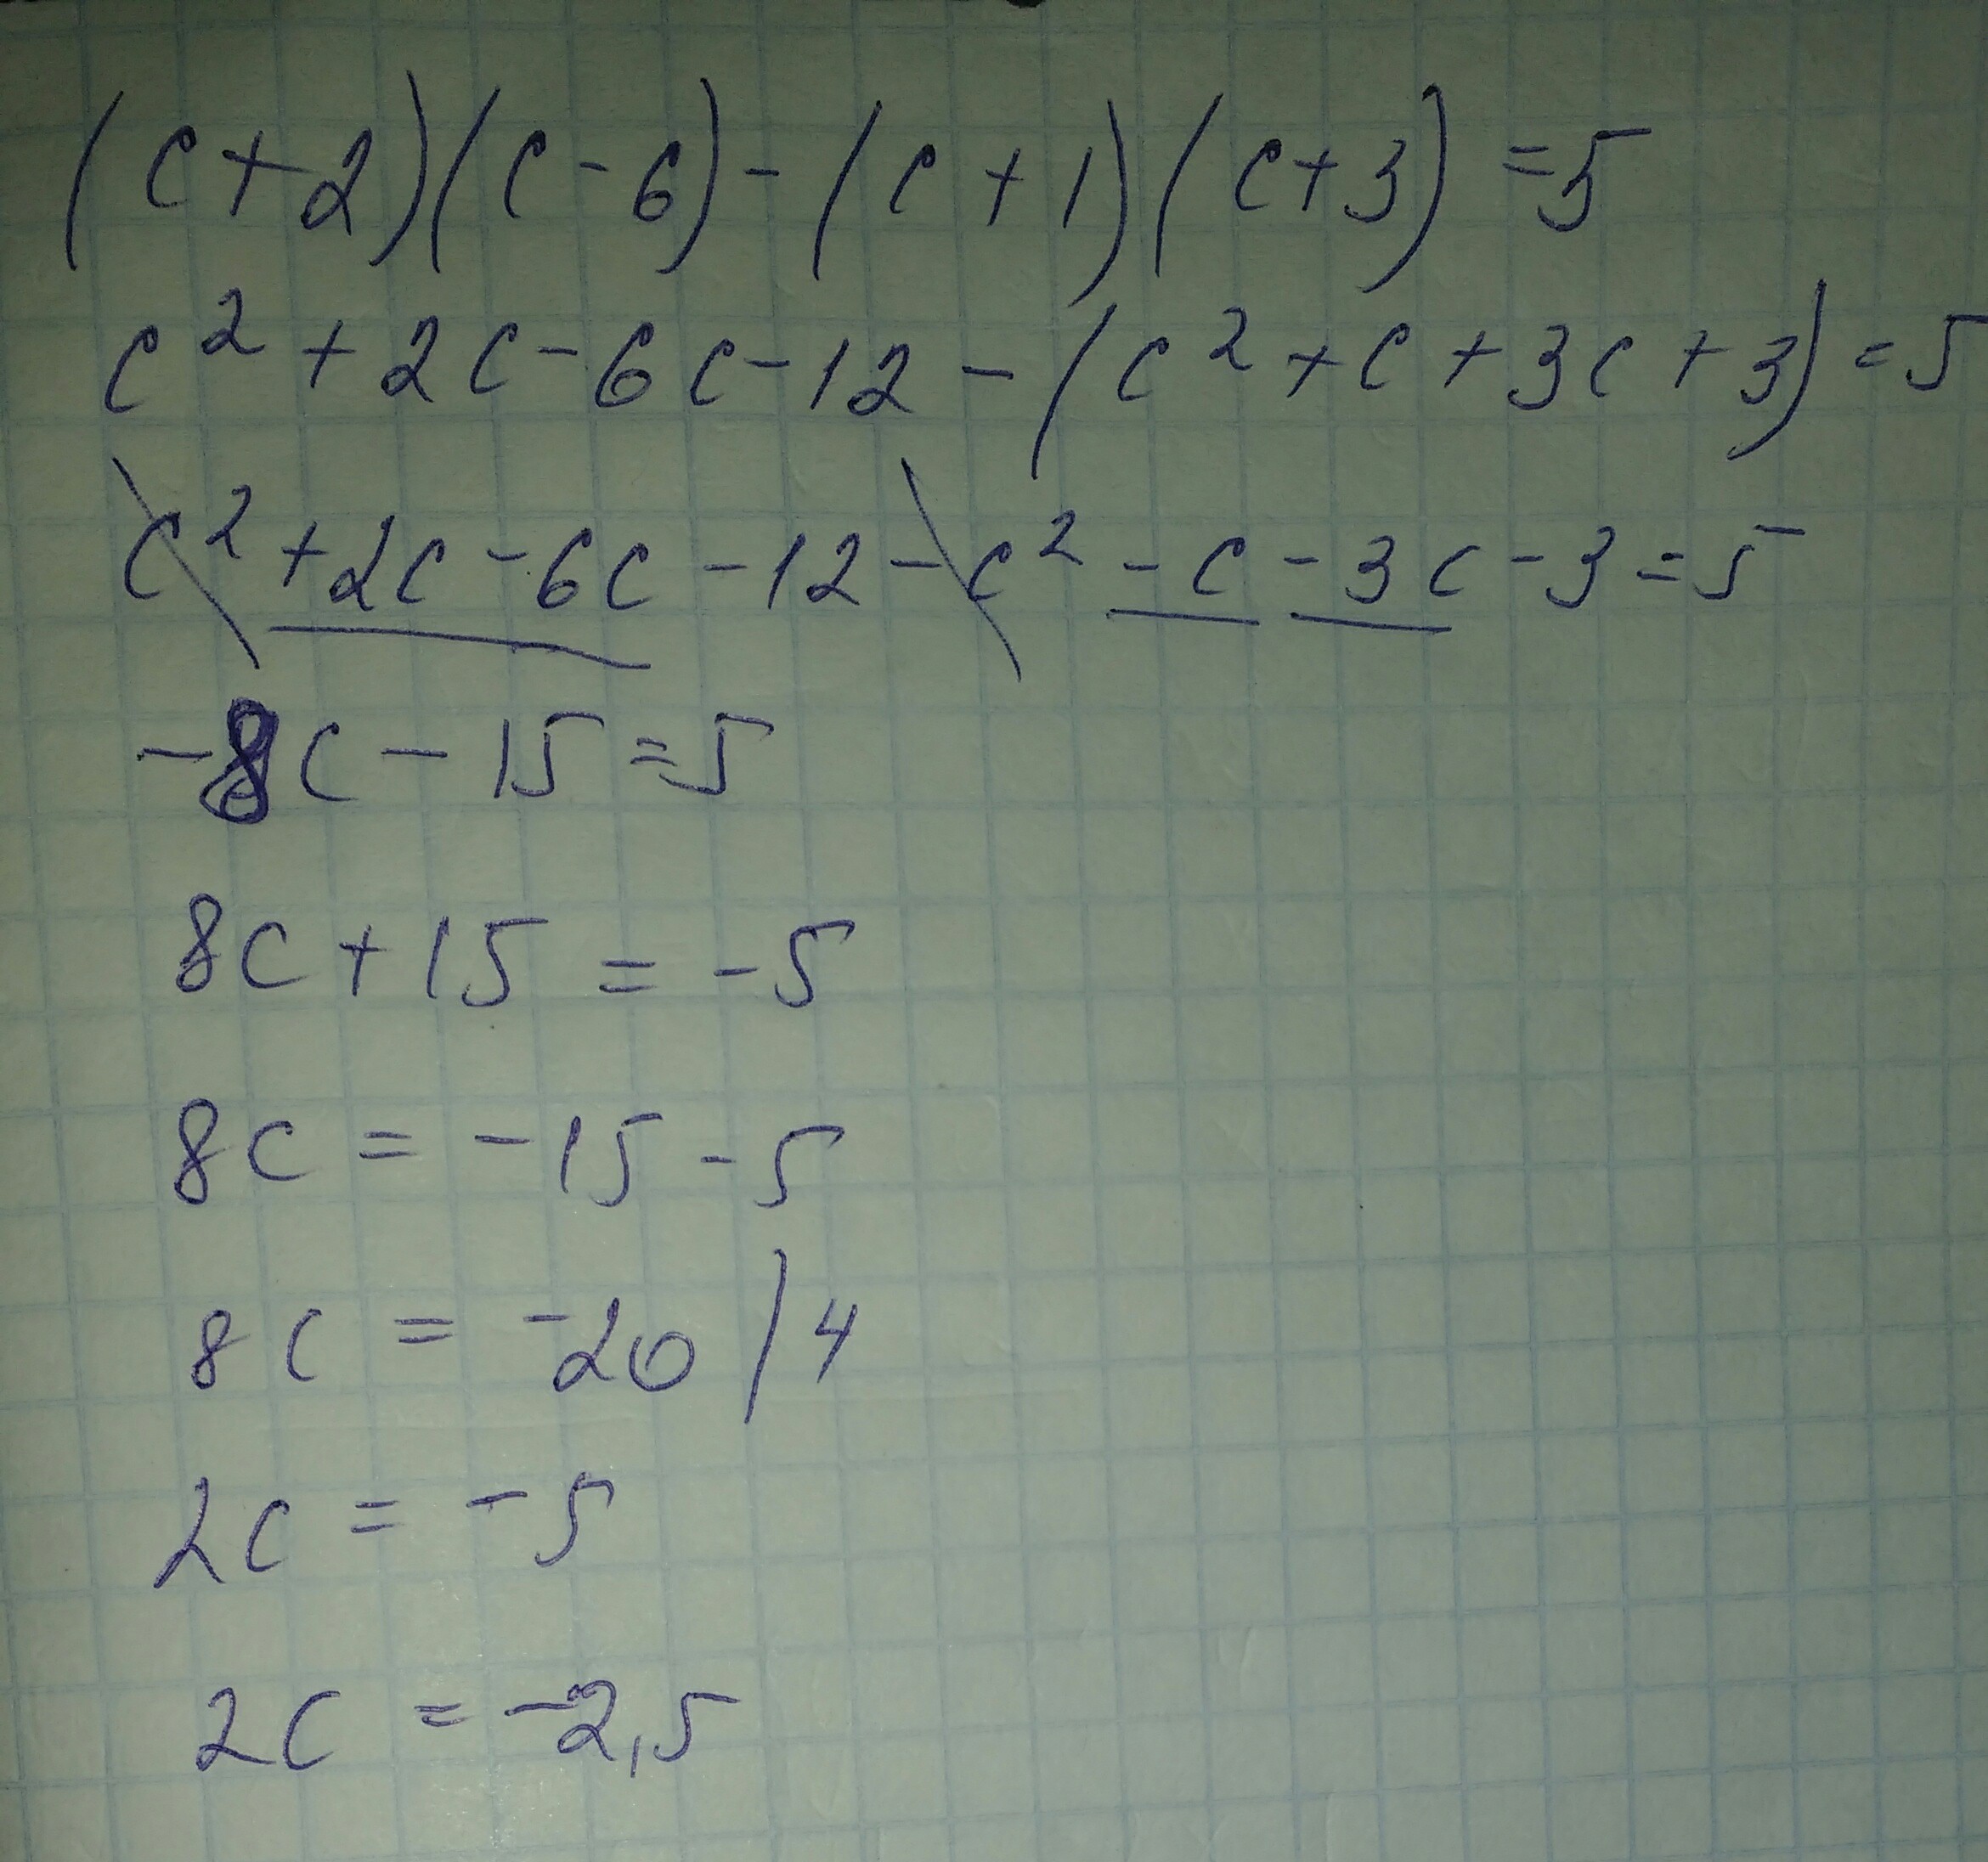 (c+2)(c-6)-(c+1)(c+3)=5
c²+2c-6c-12-(c²+c+3c+3)=5
c²+2c-6c-12-c²-c-3c-3=5
-8c-15=5
8c+15=-5
8c=-15-5
8c=-20/4
2c=-5
2c=-2,5